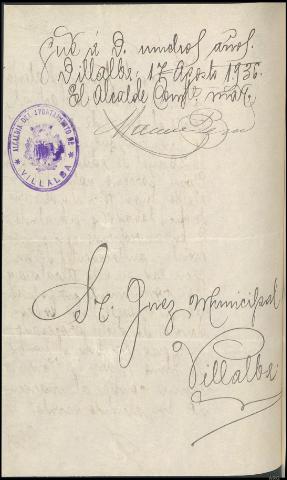 á D. muchos años.
Villalba, 17 Agosto 1936.
El Alcalde
ALCALDIA DEL AYUNTAMIENTO DE
VILLALBA
Sr. Juez Municipal
Villalba